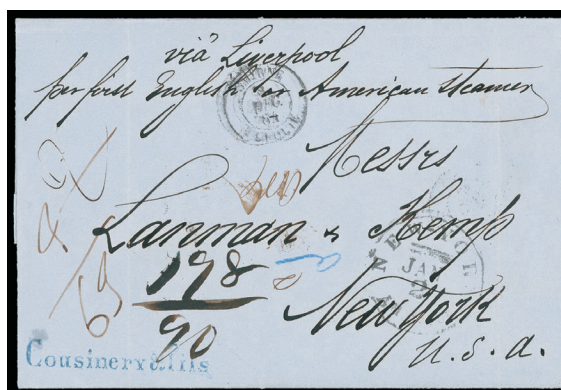 via Liverpool
per first English or American steamer
Messrs
Lanman & Kemp
178
90
New York
U. S. a.
JAN
2
Cousinery & Fils